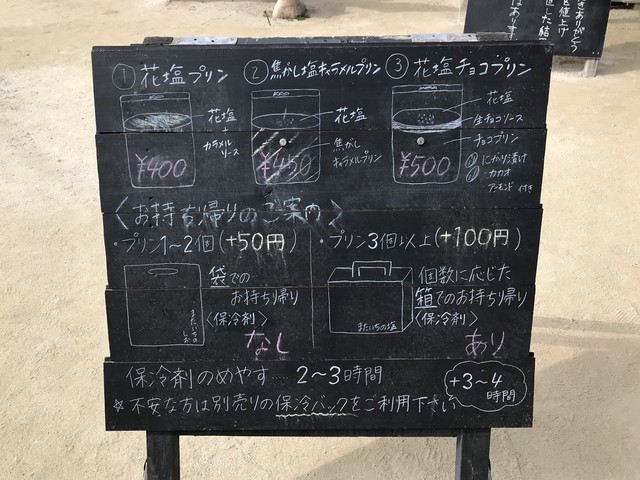 ①花塩プリン
花塩
+
カラメル
ソース
¥400
②焦がし塩キャラメルプリン
花塩
焦がし
キャラメルプリン
¥450
③花塩チョコプリン
花塩
生チョコソース
チョコプリン
にがり漬け
カカオ
アーモンド 付き
¥500
〈お持ち帰りのご案内〉
・プリン1~2個(+50円)
袋での
お持ち帰り
〈保冷剤〉
なし
またいちの
しお
・プリン3個以上(+100円)
個数に応じた
箱でのお持ち帰り
〈保冷剤〉
あり
またいちの塩
保冷剤のめやす……2~3時間
☆不安な方は別売りの保冷バックをご利用下さい
+3~4
時間